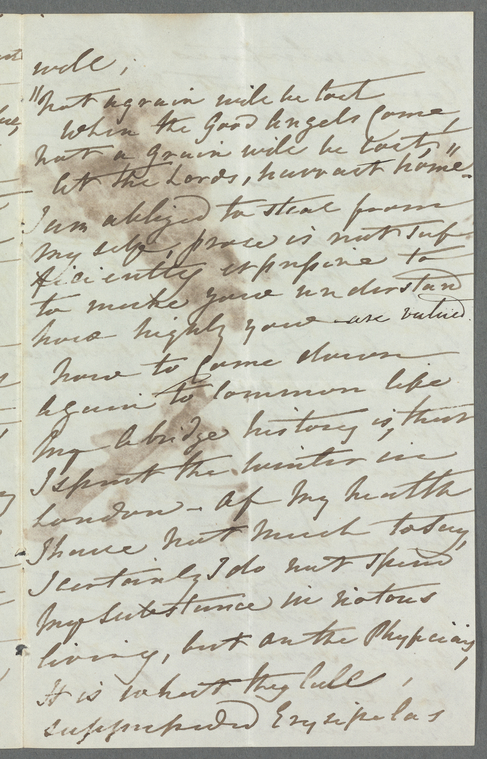 will,
"Not a grain will be lost
when the Good Angels Come,
Not a Grain will be lost"
at the Lords, harvast home.
I am obliged to steal from
my self prose is not suf
ficiently expressive to
to make you understand
how highly you are valued.
now to Come down
again to Common life
My abridge history is, that
I spent the winter in
London - Of My health
I have not Much to say,
I certainly I do not spend
My Substance in riotous
living, but on the Physicians,
It is what they Call,
suppressed Erysipelas